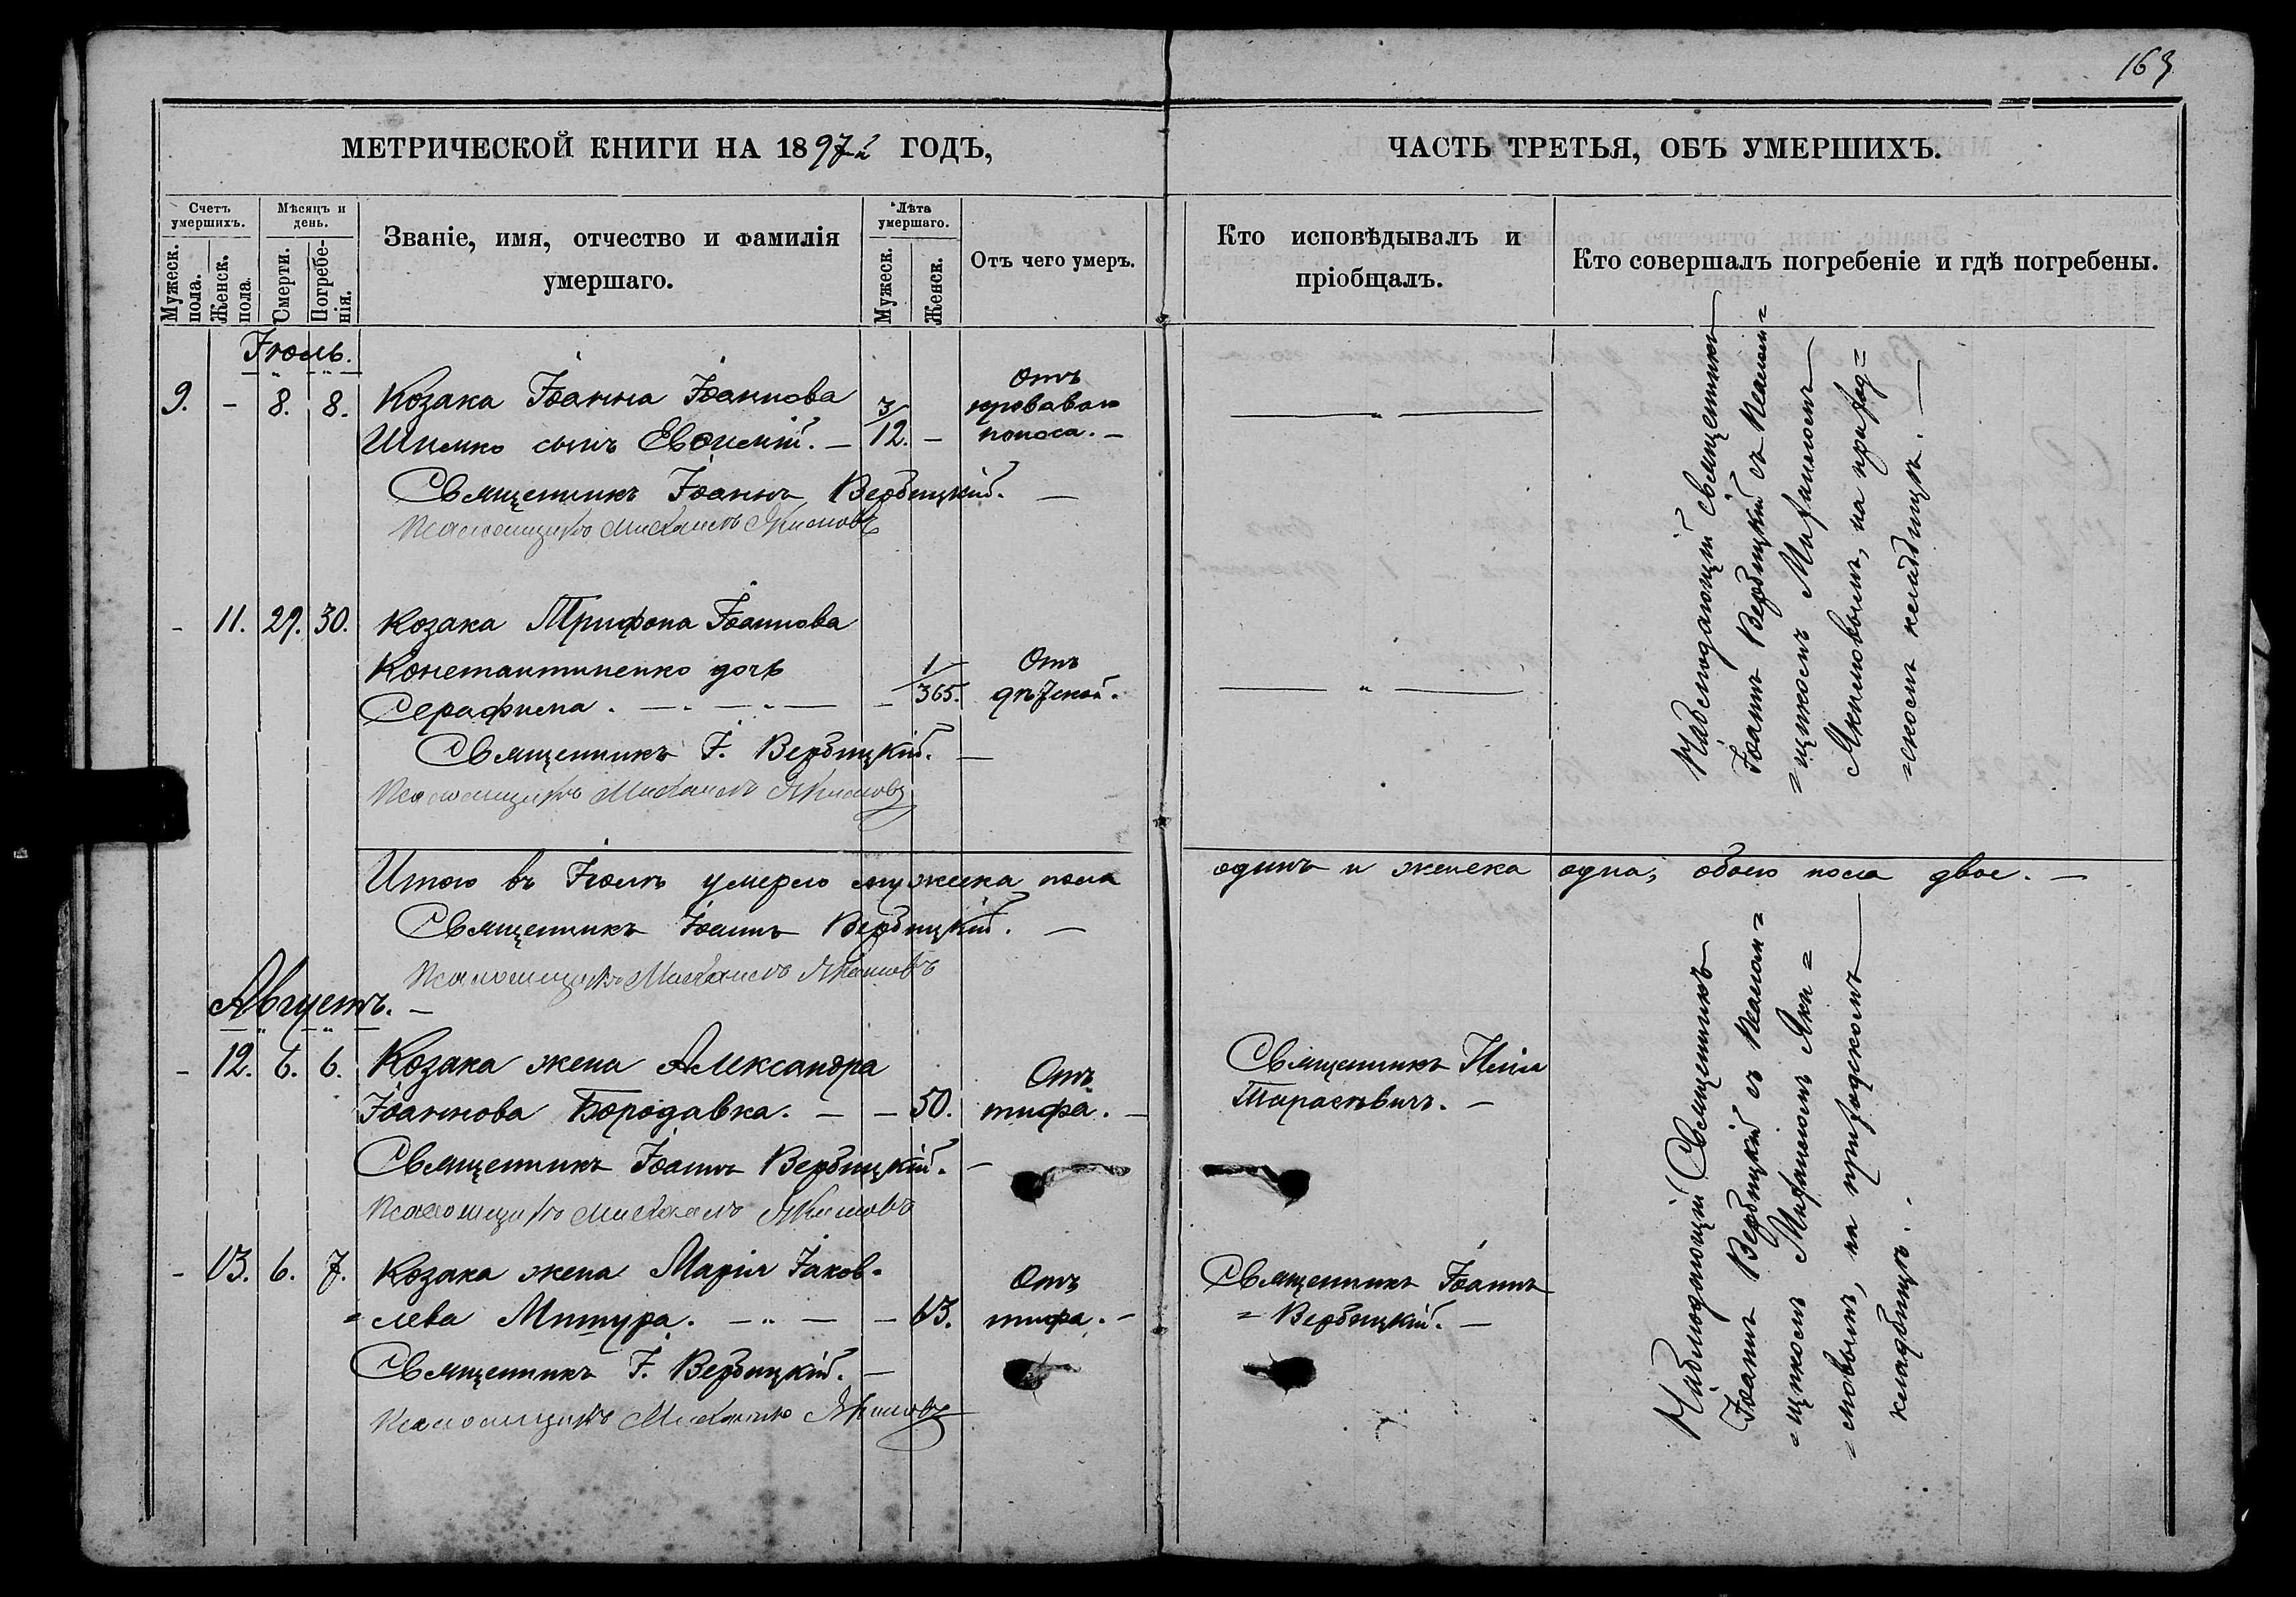 163
МЕТРИЧЕСКОЙ КНИГИ НА 1897й ГОДЪ,
ЧАСТЬ ТРЕТЬЯ, ОБЪ УМЕРШИХЪ.
Счетъ умершихъ.
Мужеск. пола.
Женск. пола.
Мѣсяцъ и день.
Смерти.
Погребе-
нія.
Званіе, имя, отчество и фамилія
умершаго.
Лѣта умершаго.
Мужеск.
Женск.
Отъ чего умеръ.
Кто исповѣдывалъ и
пріобщалъ.
Кто совершалъ погребеніе и гдѣ погребены.
Іюль.
9. - 8. 8. Козака Іоанна Іоаннова
Шпемко сынъ Евѳимій. - 3/12. -
Отъ
кроваваго
поноса. -
Священникъ Іоаннъ Вербицкій. -
Псаломщикъ Михаилъ Якимовъ
- 11. 29. 30. Козака Трифона Іоаннова
Константиненко дочь
Серафима. - 1/365.
Отъ
дѣтской.
Священникъ І. Вербицкій. -
Псаломщикъ Михаилъ Якимовъ
Наблюдающій священникъ
Іоаннъ Вербицкій съ псалом=
=щикомъ Михаиломъ
Якимовымъ, на приход=
=скомъ кладбищѣ. -
Итого въ Іюлѣ умерло мужска пола одинъ и женска одна, обоего пола двое. -
Священникъ Іоаннъ Вербицкій. -
Псаломщикъ Михаилъ Якимовъ
Августъ. -
- 12. 6. 6. Козака жена Александра
Іоаннова Бородавка. - - 50.
Отъ
тифа. -
Священникъ
Тарасевичъ. -
Священникъ Іоаннъ Вербицкій. -
Псаломщикъ Михаилъ Якимовъ
- 13. 6. 7. Козака жена Марія Іаков-
=лева Митура. - - 63.
Отъ
тифа. -
Священникъ Іоаннъ
= Вербицкій. -
Священникъ І. Вербицкій. -
Псаломщикъ Михаилъ Якимовъ
Наблюдающій Священникъ
Іоаннъ Вербицкій съ псалом=
=щикомъ Михаиломъ Яки=
=мовымъ, на приходскомъ
кладбищѣ.